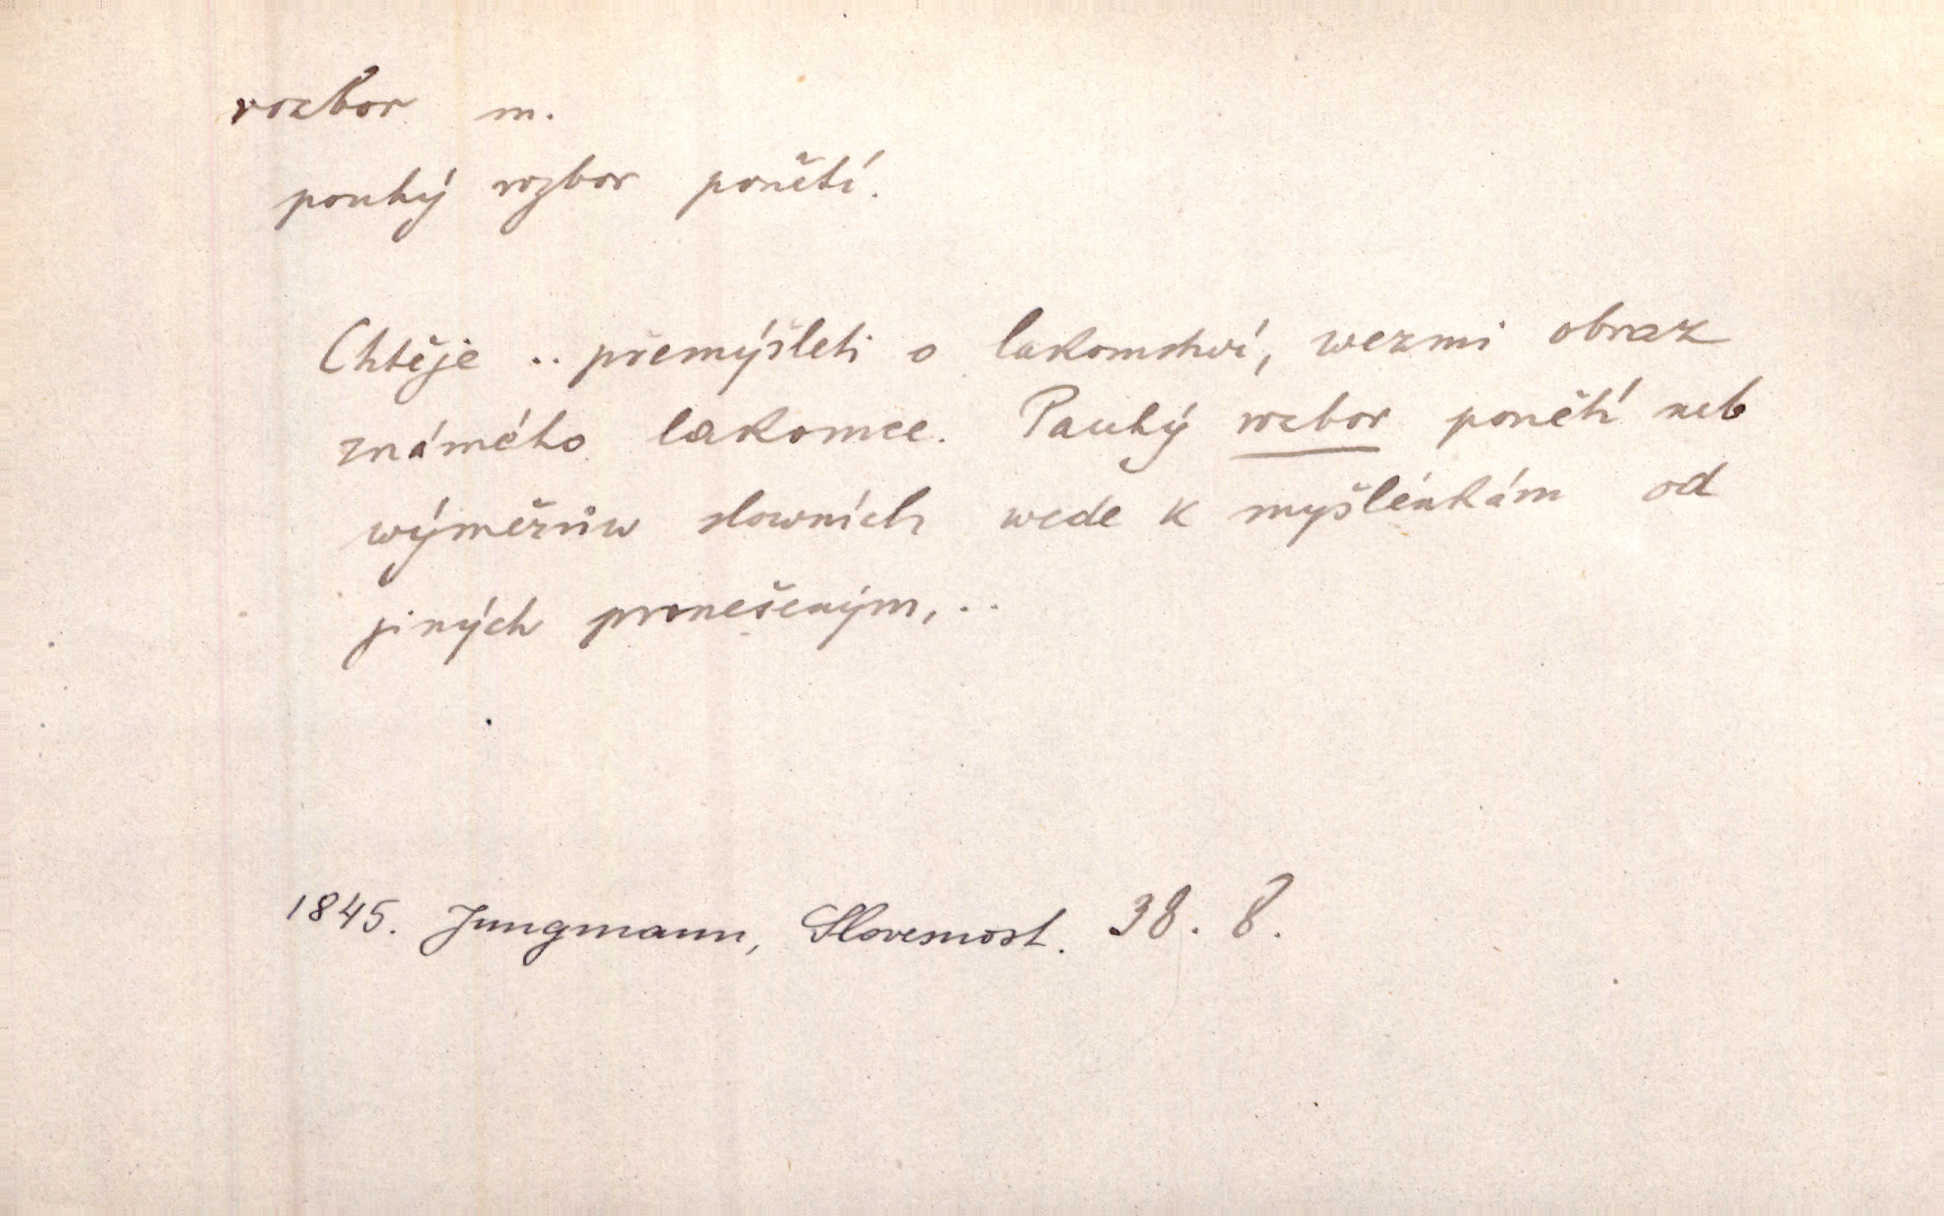 rozbor m.
pouhý rozbor ponětí.
Chtěje .. přemýšleti o lakomstwí, wezmi obraz
známého lakomce. Pauhý rozbor ponětí neb
wýměrůw slowních wede k myšlénkám od
jiných pronešeným, ..
1845. Jungmann, Slovesnost. 38. 8.